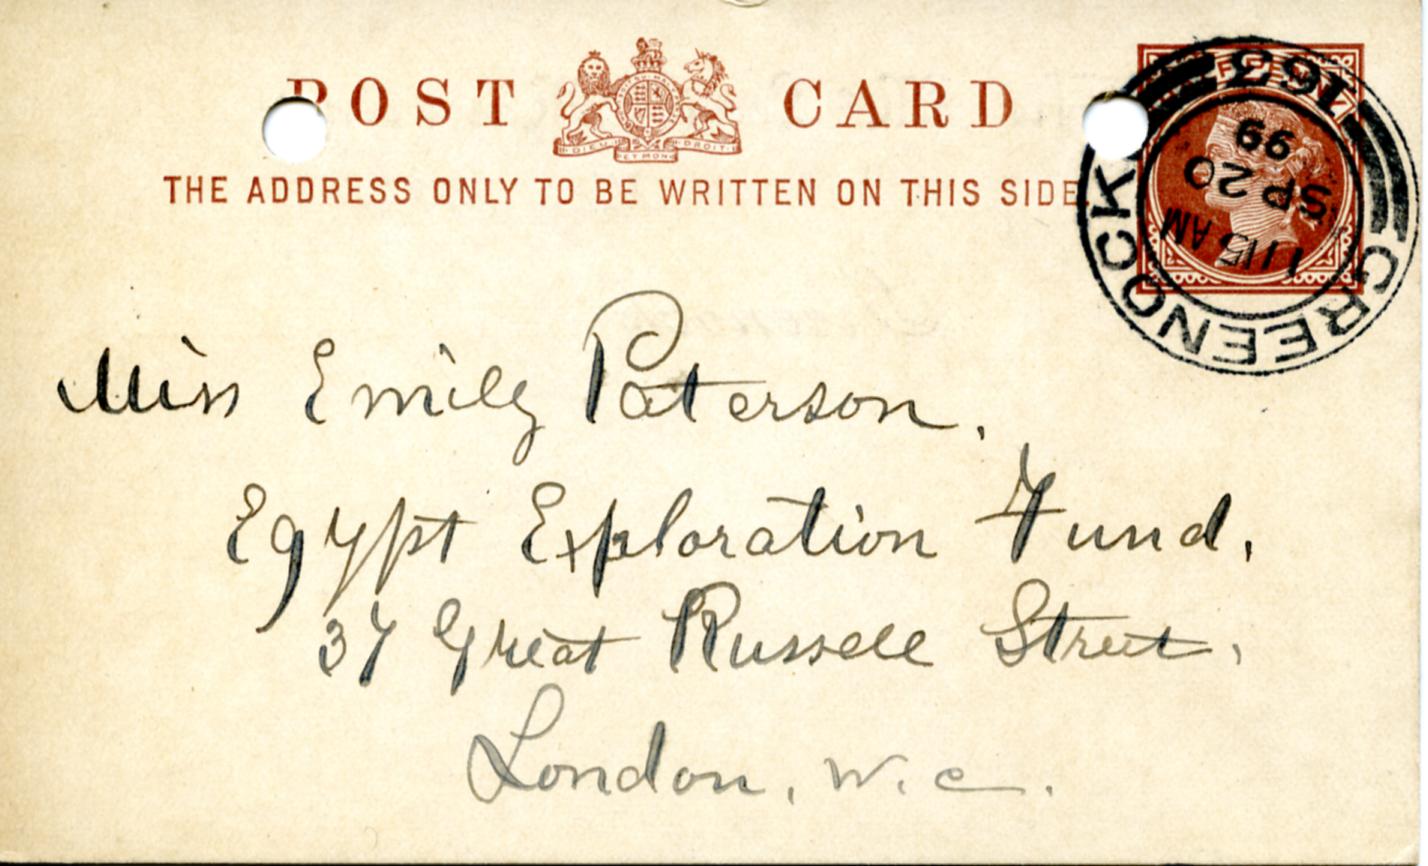 POST CARD
DIEU ET MON DROIT
THE ADDRESS ONLY TO BE WRITTEN ON THIS SIDE.
GREENOCK
163
11 15 AM
SP 20
99
Miss Emily Paterson.
Egypt Exploration Fund,
37 Great Russell Street,
London, W.C.